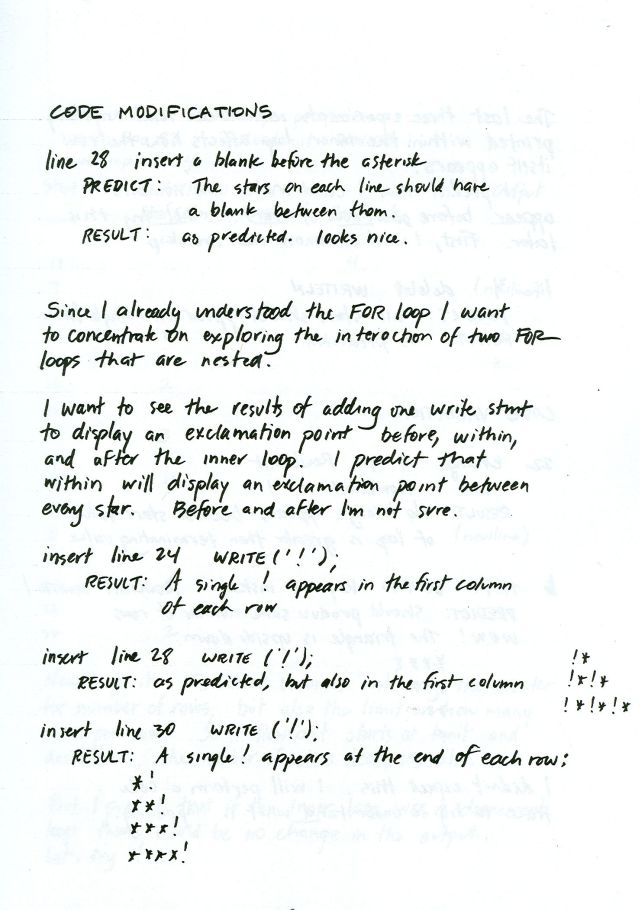 CODE MODIFICATIONS
line 28 insert a blank before the asterisk
PREDICT: The stars on each line should have
a blank between them.
RESULT: as predicted. looks nice.
Since I already understood the FOR loop I want
to concentrate on exploring the interaction of two FOR
loops that are nested.
I want to see the results of adding one write stmt
to display an exclamation point before, within,
and after the inner loop. I predict that
within will display an exclamation point between
every star. Before and after I'm not sure.
insert line 24 WRITE ('!');
RESULT: A single ! appears in the first column
of each row
insert line 28 WRITE ('!');
RESULT: as predicted, but also in the first column
!*
!*!*
!*!*!*
insert line 30 WRITE ('!');
RESULT: A single ! appears at the end of each row:
*!
**!
***!
****!